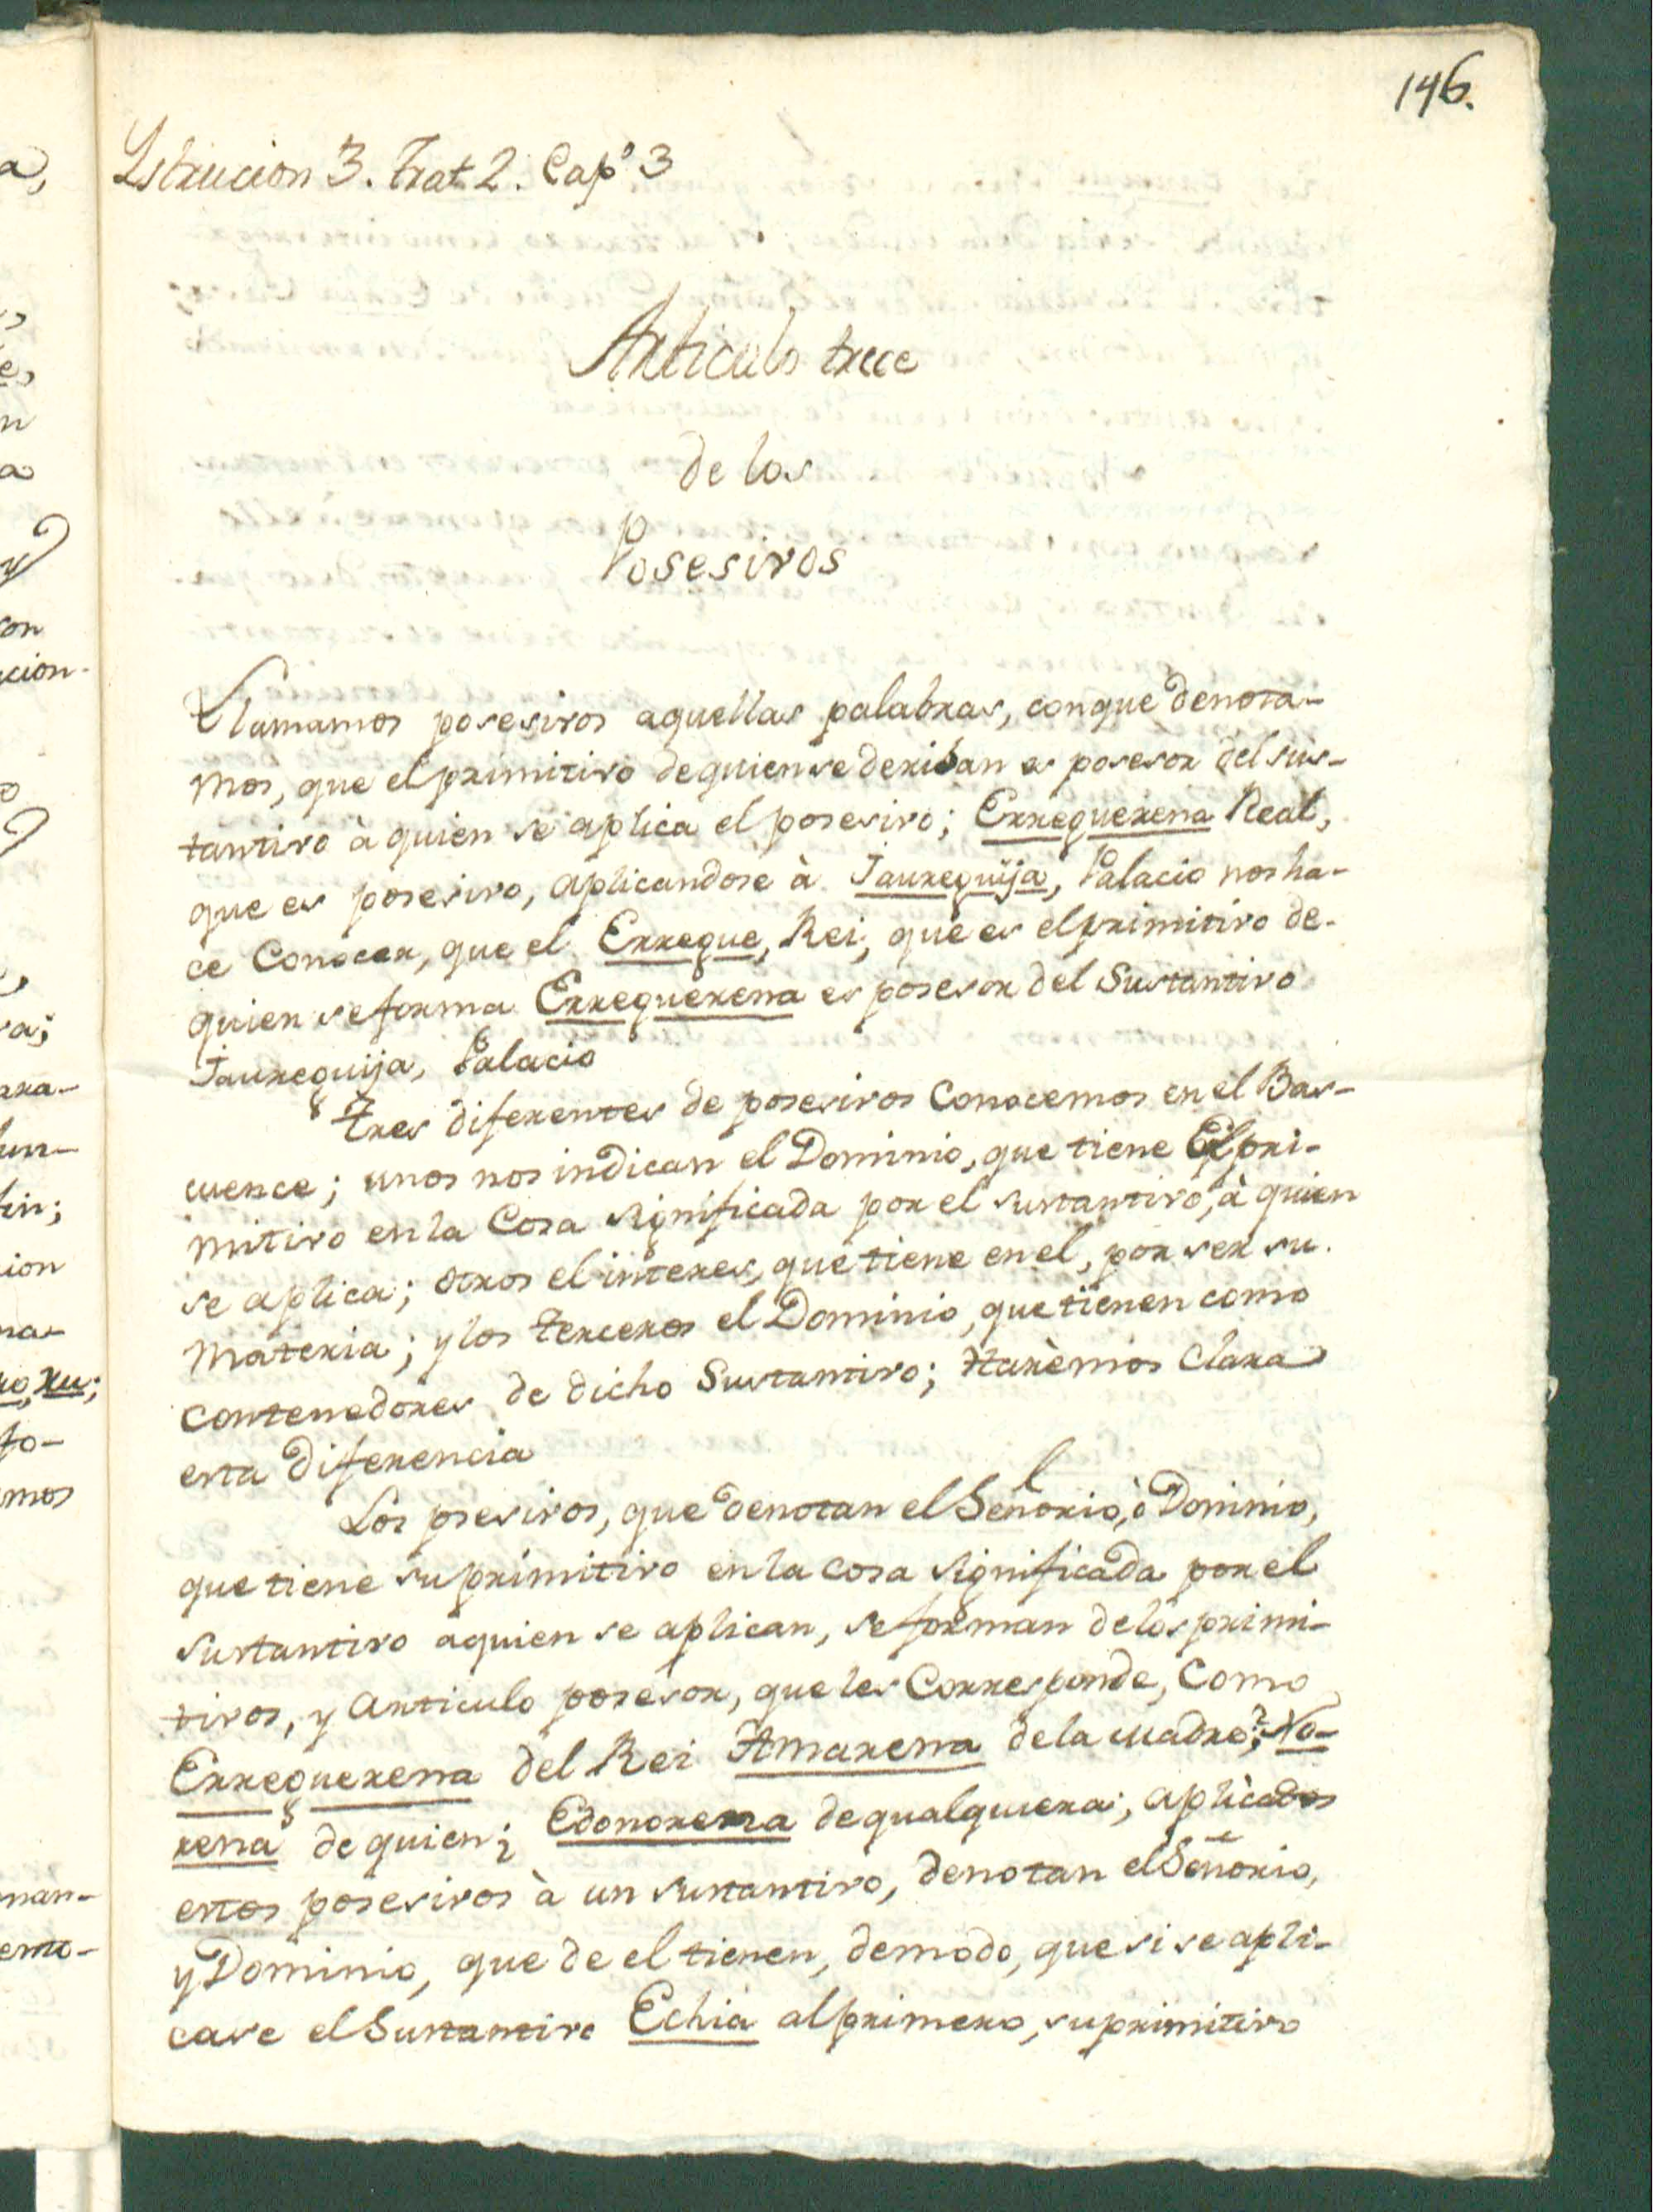 146.
Ystrucion 3. Trat 2. Capº 3
Articulo trece
de los
Posesivos
Llamamos posesivos aquellas palabras, conque denota-
mos, que el primitivo dequiensederiban es posesor del sus-
tantivo à quien se aplica el posesivo; Erreguerena Real,
que es posesivo, aplicandose à Jaureguija, Palacio nos ha-
ce Conocer, que el Erregue, Rei, que es elprimitivo de-
quien seforma Erreguerena es posesor del Sustantivo
Jaureguija, Palacio
Tres diferentes de posesivos Conocemos en el Bas-
cuence; unos nos indican el Dominio, que tiene El pri-
mitivo en la Cosa significada por el sustantivo, à quien
se aplica; otros el interes, que tiene en el, por ser su
materia; y los terceros el Dominio, que tienen como
contenedores de dicho Sustantivo; Harèmos Clara
esta diferencia
Los psesivos, que denotan el Señorio, ò Dominio,
que tiene su primitivo en la cosa significada por el
sustantivo aquien se aplican, se forman delos primi-
tivos, y articulo posesor, que les Corresponde, Como
Erreguerena del Rei Amarena dela madre; No-
rena de quien; Edonorena dequalquiera; aplicados
estos posesivos à un sustantivo, denotan el Señorio,
y Dominio, que de el tienen, demodo, que si se apli-
case el Sustantivo Echia alprimero, suprimitivo
a,
e,
n
a
on
cion-
o
ra;
ara-
lun-
tin;
ion
na-
ru;
fo-
mos
man-
emo-